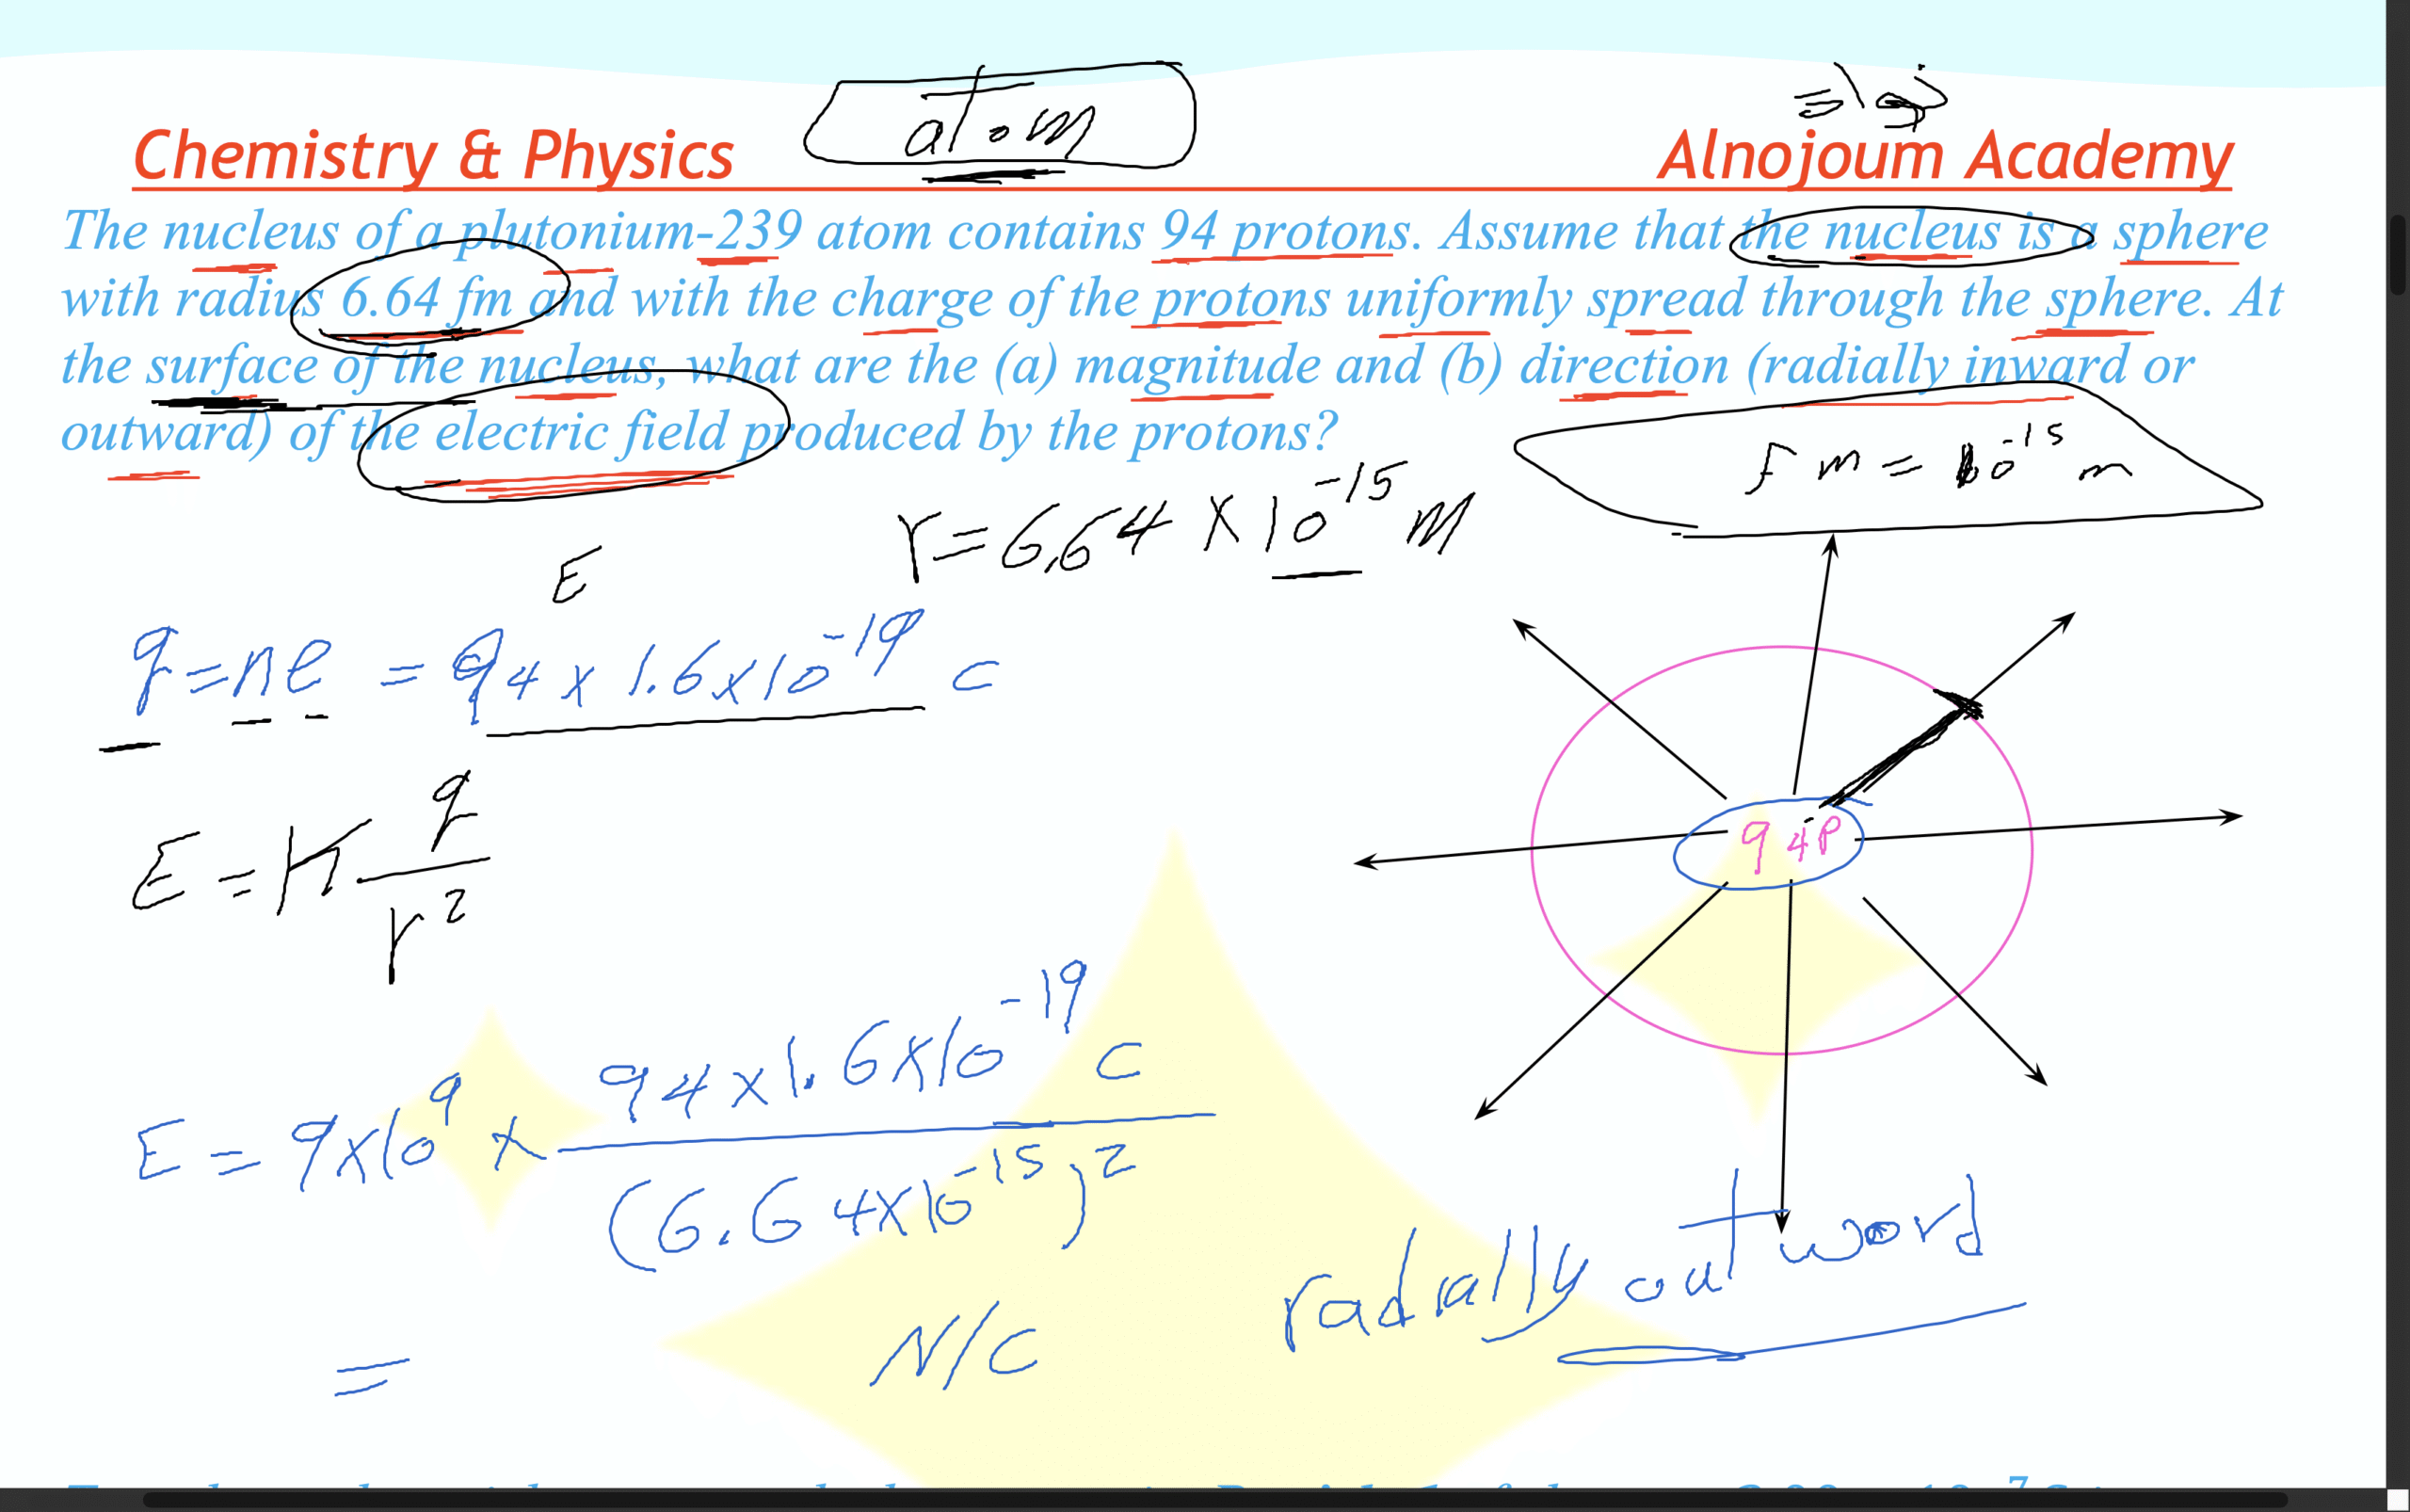 atom
Chemistry & Physics Alnojoum Academy
The nucleus of a plutonium-239 atom contains 94 protons. Assume that the nucleus is a sphere
with radius 6.64 fm and with the charge of the protons uniformly spread through the sphere. At
the surface of the nucleus, what are the (a) magnitude and (b) direction (radially inward or
outward) of the electric field produced by the protons?
fm = 10^-15 m
r = 6.64 × 10^-15 m
E
q = ne = 94 × 1.6 × 10^-19 C
E = K q / r^2
94 P
E = 9×10^9 × 94×1.6×10^-19 C / (6.64×10^-15)^2
radially outword
= N/C